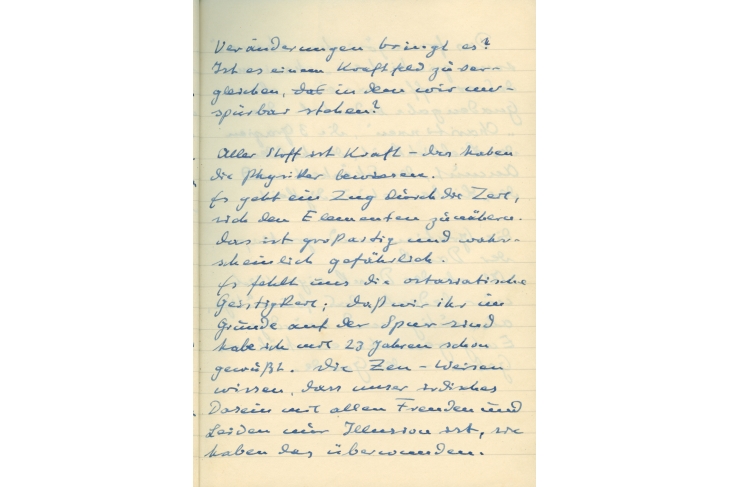 Veränderungen bringt es?
Ist es einem Kraftfeld zu ver-
gleichen, das in dem wir un-
spürbar stehen?
Aller Stoff ist Kraft – das haben
die Physiker bewiesen.
Es geht ein Zug durch die Zeit,
sich den Elementen zu nähern.
Das ist großartig und wahr-
scheinlich gefährlich.
Es fehlt uns die ostasiatische
Geistigkeit; daß wir ihr im
Grunde auf der Spur sind
habe ich mit 23 Jahren schon
gewußt. Die Zen-Weisen
wissen, dass unser irdisches
Dasein mit allen Freuden und
Leiden nur Illusion ist, sie
haben das überwunden.